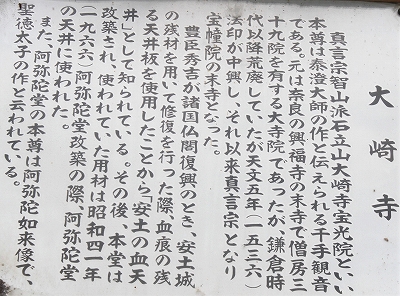 大崎寺
真言宗智山派石立山大崎寺宝光院といい
本尊は泰澄大師の作と伝えられる千手観音
である。元は奈良の興福寺の末寺で僧房三
十九院を有する大寺院であったが、鎌倉時
代以降荒廃していたが天文五年(一五三六)
法印が中興し、それ以来真言宗となり
宝幢院の末寺となった。
豊臣秀吉が諸国仏閣復興のとき、安土城
の残材を用いて修復を行った際、血痕の残
る天井板を使用したことから「安土の血天
井」として知られている。その後、本堂は
改築され、使われていた用材は昭和四一年
(一九六六)阿弥陀堂改築の際、阿弥陀堂
の天井に使われた。
また、阿弥陀堂の本尊は阿弥陀如来像で、
聖徳太子の作と云われている。